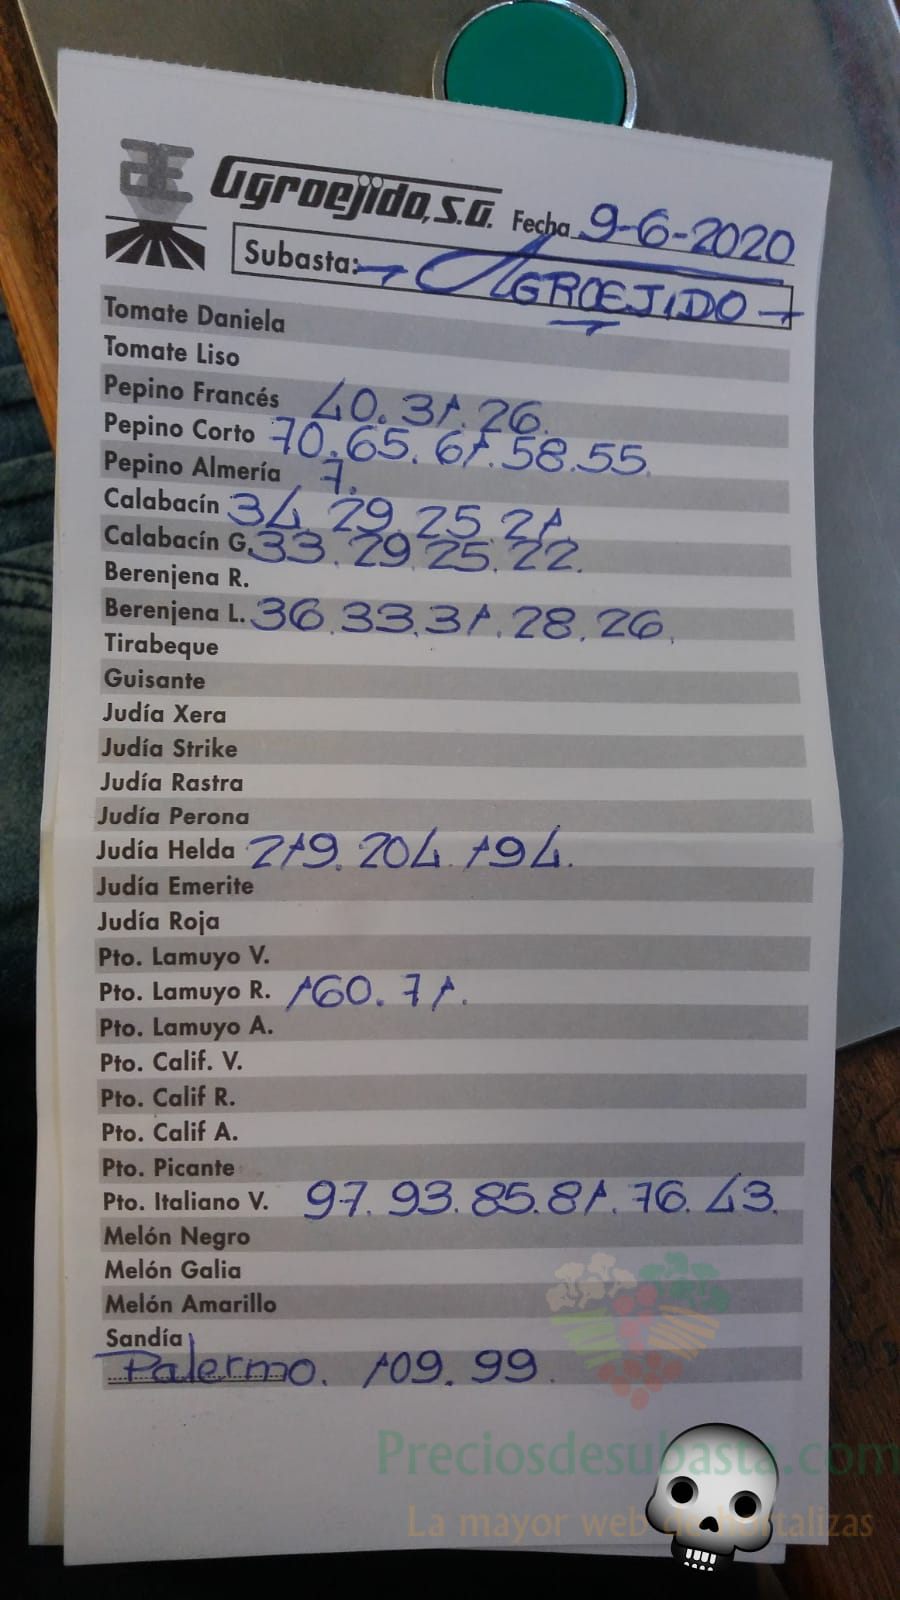 Agroejido, S.A. Fecha 9-6-2020
Subasta: AGROEJIDO
Tomate Daniela
Tomate Liso
Pepino Francés 40. 31. 26.
Pepino Corto 70. 65. 61. 58. 55.
Pepino Almería 7.
Calabacín 34. 29. 25. 21.
Calabacín G. 33. 29. 25. 22.
Berenjena R.
Berenjena L. 36. 33. 31. 28. 26.
Tirabeque
Guisante
Judía Xera
Judía Strike
Judía Rastra
Judía Perona
Judía Helda 219. 204. 194.
Judía Emerite
Judía Roja
Pto. Lamuyo V.
Pto. Lamuyo R. 160. 71.
Pto. Lamuyo A.
Pto. Calif. V.
Pto. Calif R.
Pto. Calif A.
Pto. Picante
Pto. Italiano V. 97. 93. 85. 81. 76. 43.
Melón Negro
Melón Galia
Melón Amarillo
Sandía
Palermo. 109. 99.
Preciosdesubasta.com
La mayor web de hortalizas